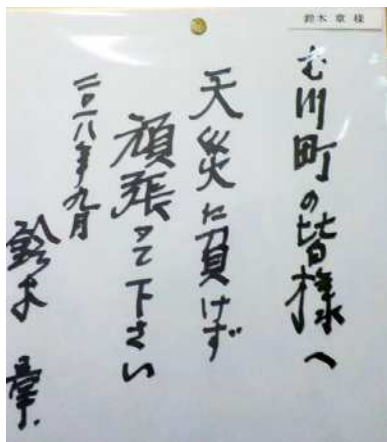 鈴木 章 様
む川町の皆様へ
天災に負けず
頑張って下さい
二〇一八年九月
鈴木 章.